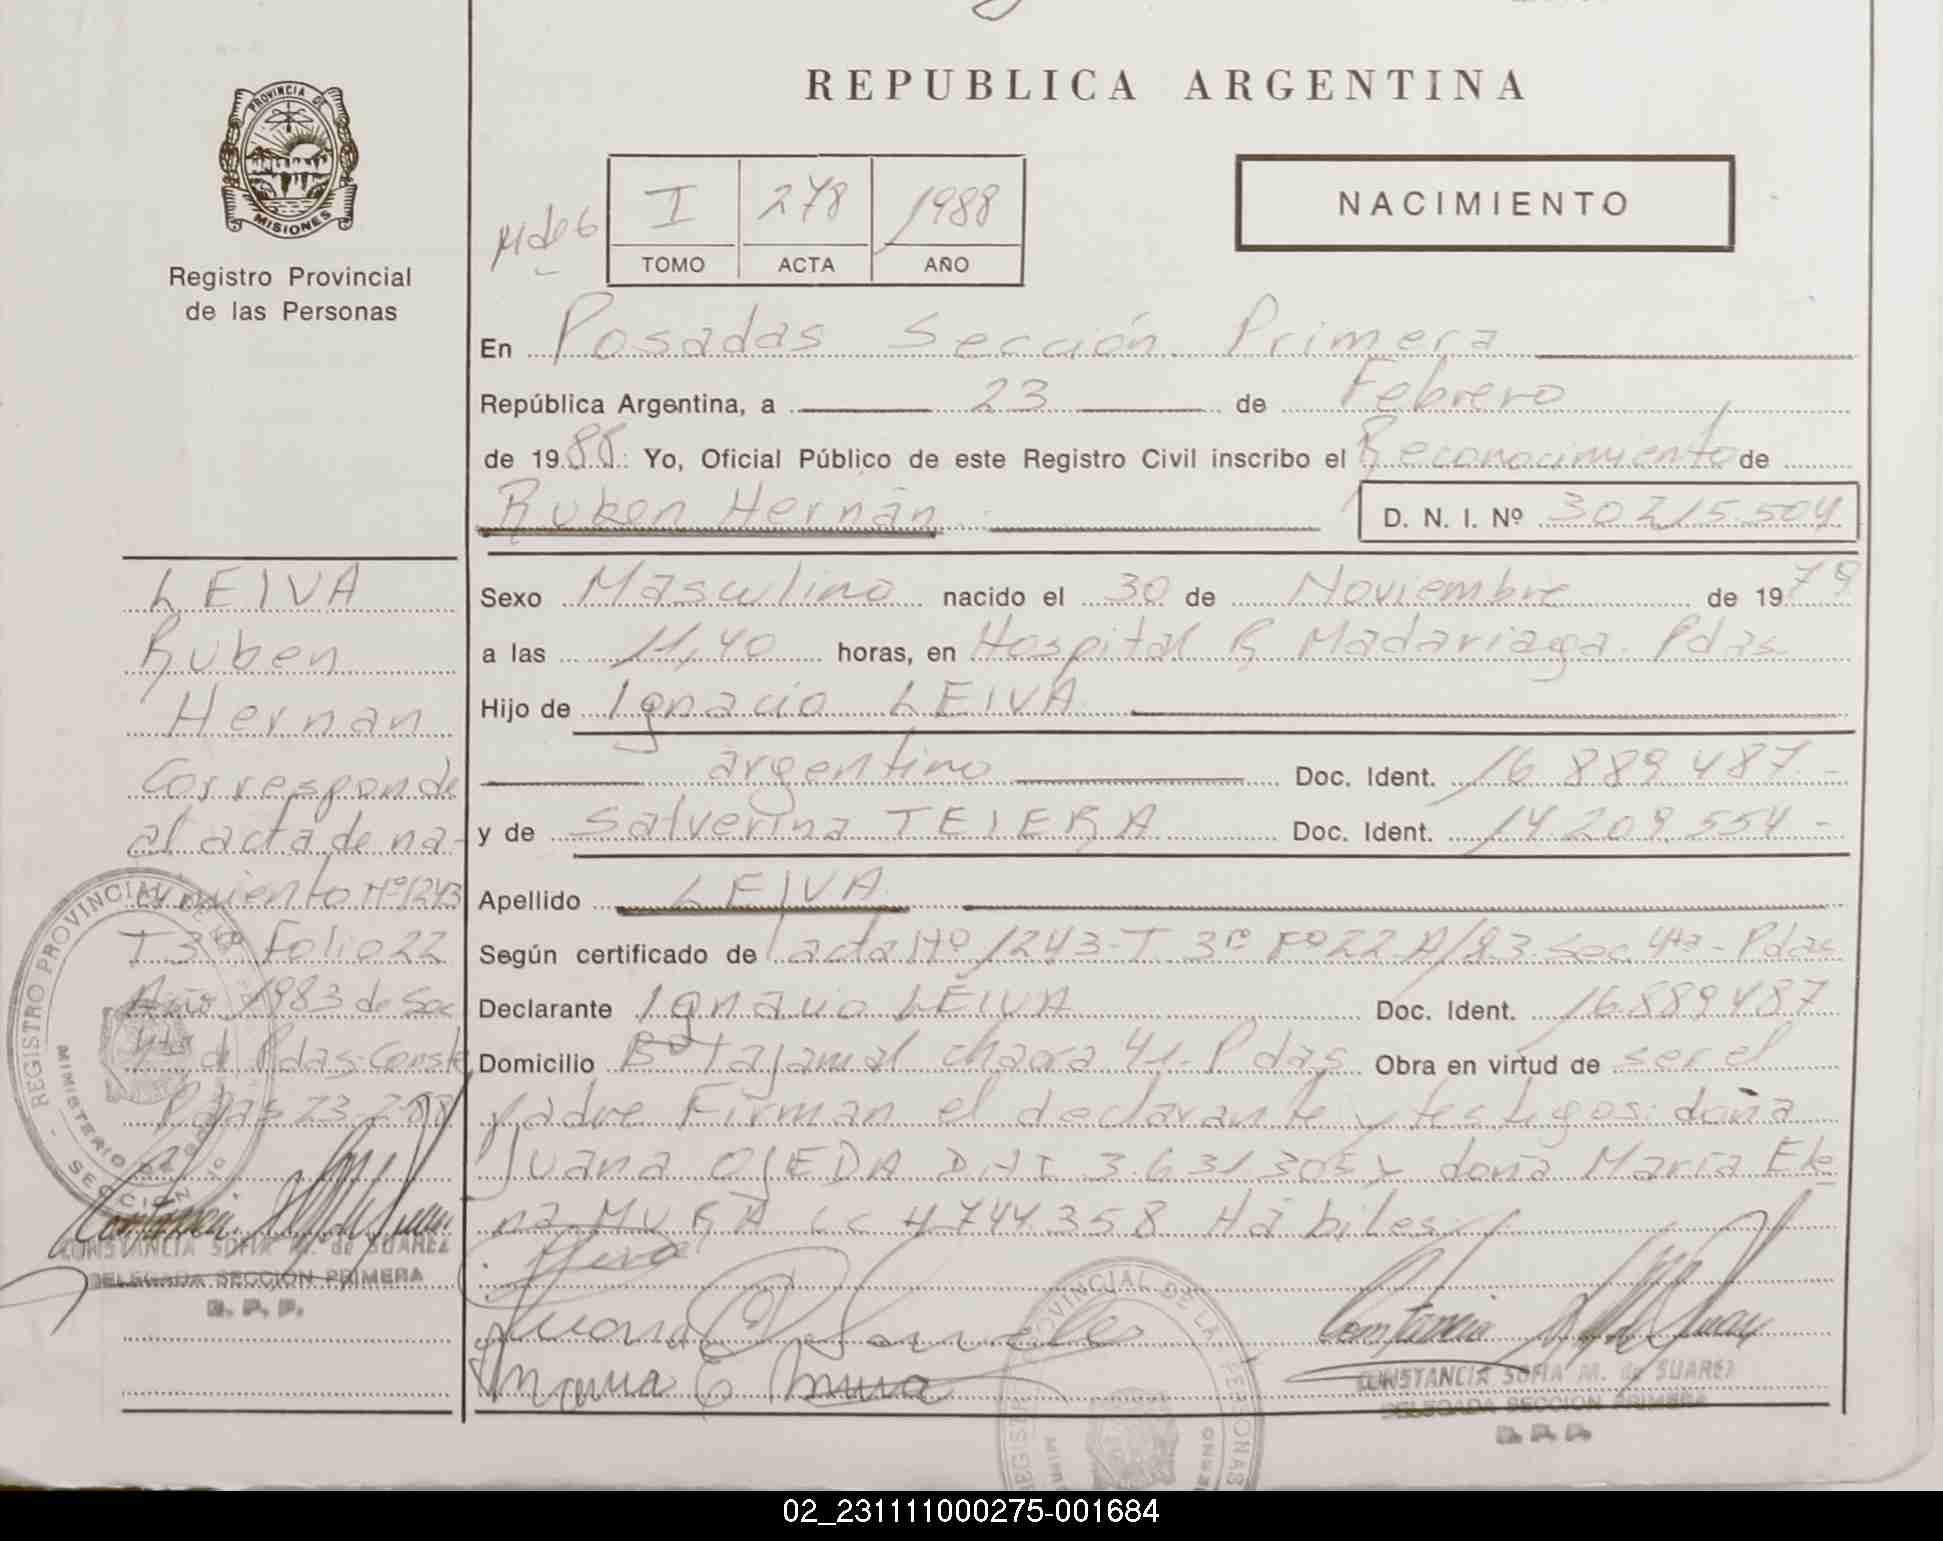 REPUBLICA ARGENTINA
PROVINCIA DE
MISIONES
Registro Provincial
de las Personas
I 278 1988
TOMO ACTA AÑO
NACIMIENTO
En Posadas Sección Primera
República Argentina, a 23 de Febrero
de 1988 Yo, Oficial Público de este Registro Civil inscribo el Reconocimiento de
Ruben Hernán D. N. I. Nº 30215.504
LEIVA
Ruben
Hernan
Corresponde
al acta de na-
cimiento Nº 1243
T 3º Folio 22
Año 1983 de Sec
4ta de Pdas. Conste
Pdas 23-2-88
CONSTANCIA SOFIA M. de SUAREZ
DELEGADA SECCION PRIMERA
R. P. P.
Sexo Masculino nacido el 30 de Noviembre de 1979
a las 11,40 horas, en Hospital R Madariaga. Pdas.
Hijo de Ignacio LEIVA
argentino Doc. Ident. 16.889.487.-
y de Salverina TEIERA Doc. Ident. 14.209.554-
Apellido LEIVA
Según certificado de acta Nº 1243-T. 3º Fº 22 A/83 Sec 4ta- Pdas
Declarante Ignacio LEIVA Doc. Ident. 16889487
Domicilio Bº Tajamal chacra 41- Pdas Obra en virtud de ser el
padre Firman el declarante y testigos: doña
Juana OJEDA DNI 3.631.305 y doña María Ele
na MURA CC 4.744.358 Hábiles
CONSTANCIA SOFIA M. de SUAREZ
DELEGADA SECCION PRIMERA
R. P. P.
02_231111000275-001684